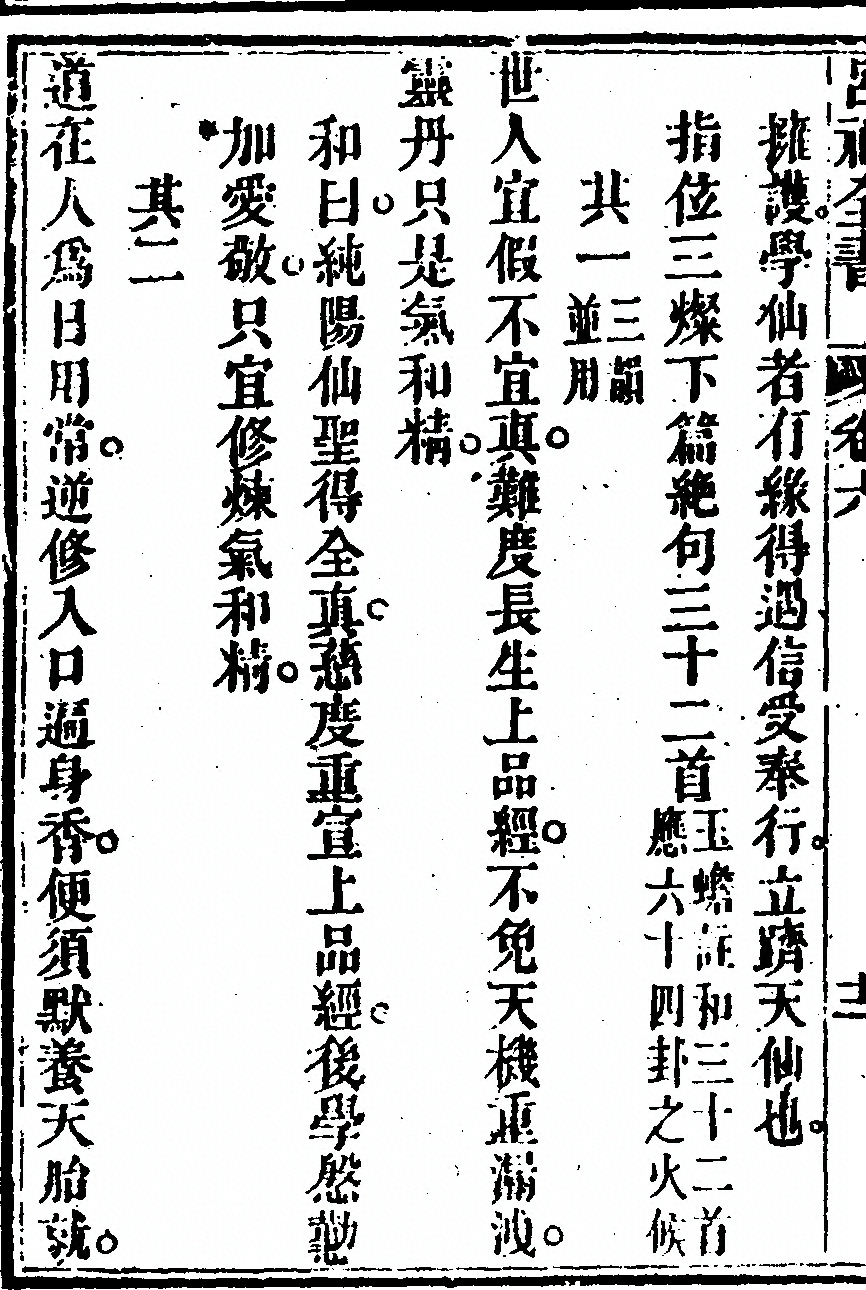 呂祖全書 卷六
擁護。學仙者有緣得遇信受奉行。立躋天仙也。
指位三燦下篇絕句三十二首 玉蟾註和三十二首
應六十四卦之火候
其一 三韻
並用
世人宜假不宜真。難度長生上品經。不免天機重漏洩。
靈丹只是氣和精。
和曰。純陽仙聖得全真。慈度重宣上品經。後學慇懃
加愛敬。只宜修煉氣和精。
其二
道在人爲日用常。逆修入口遍身香。便須默養天胎就。